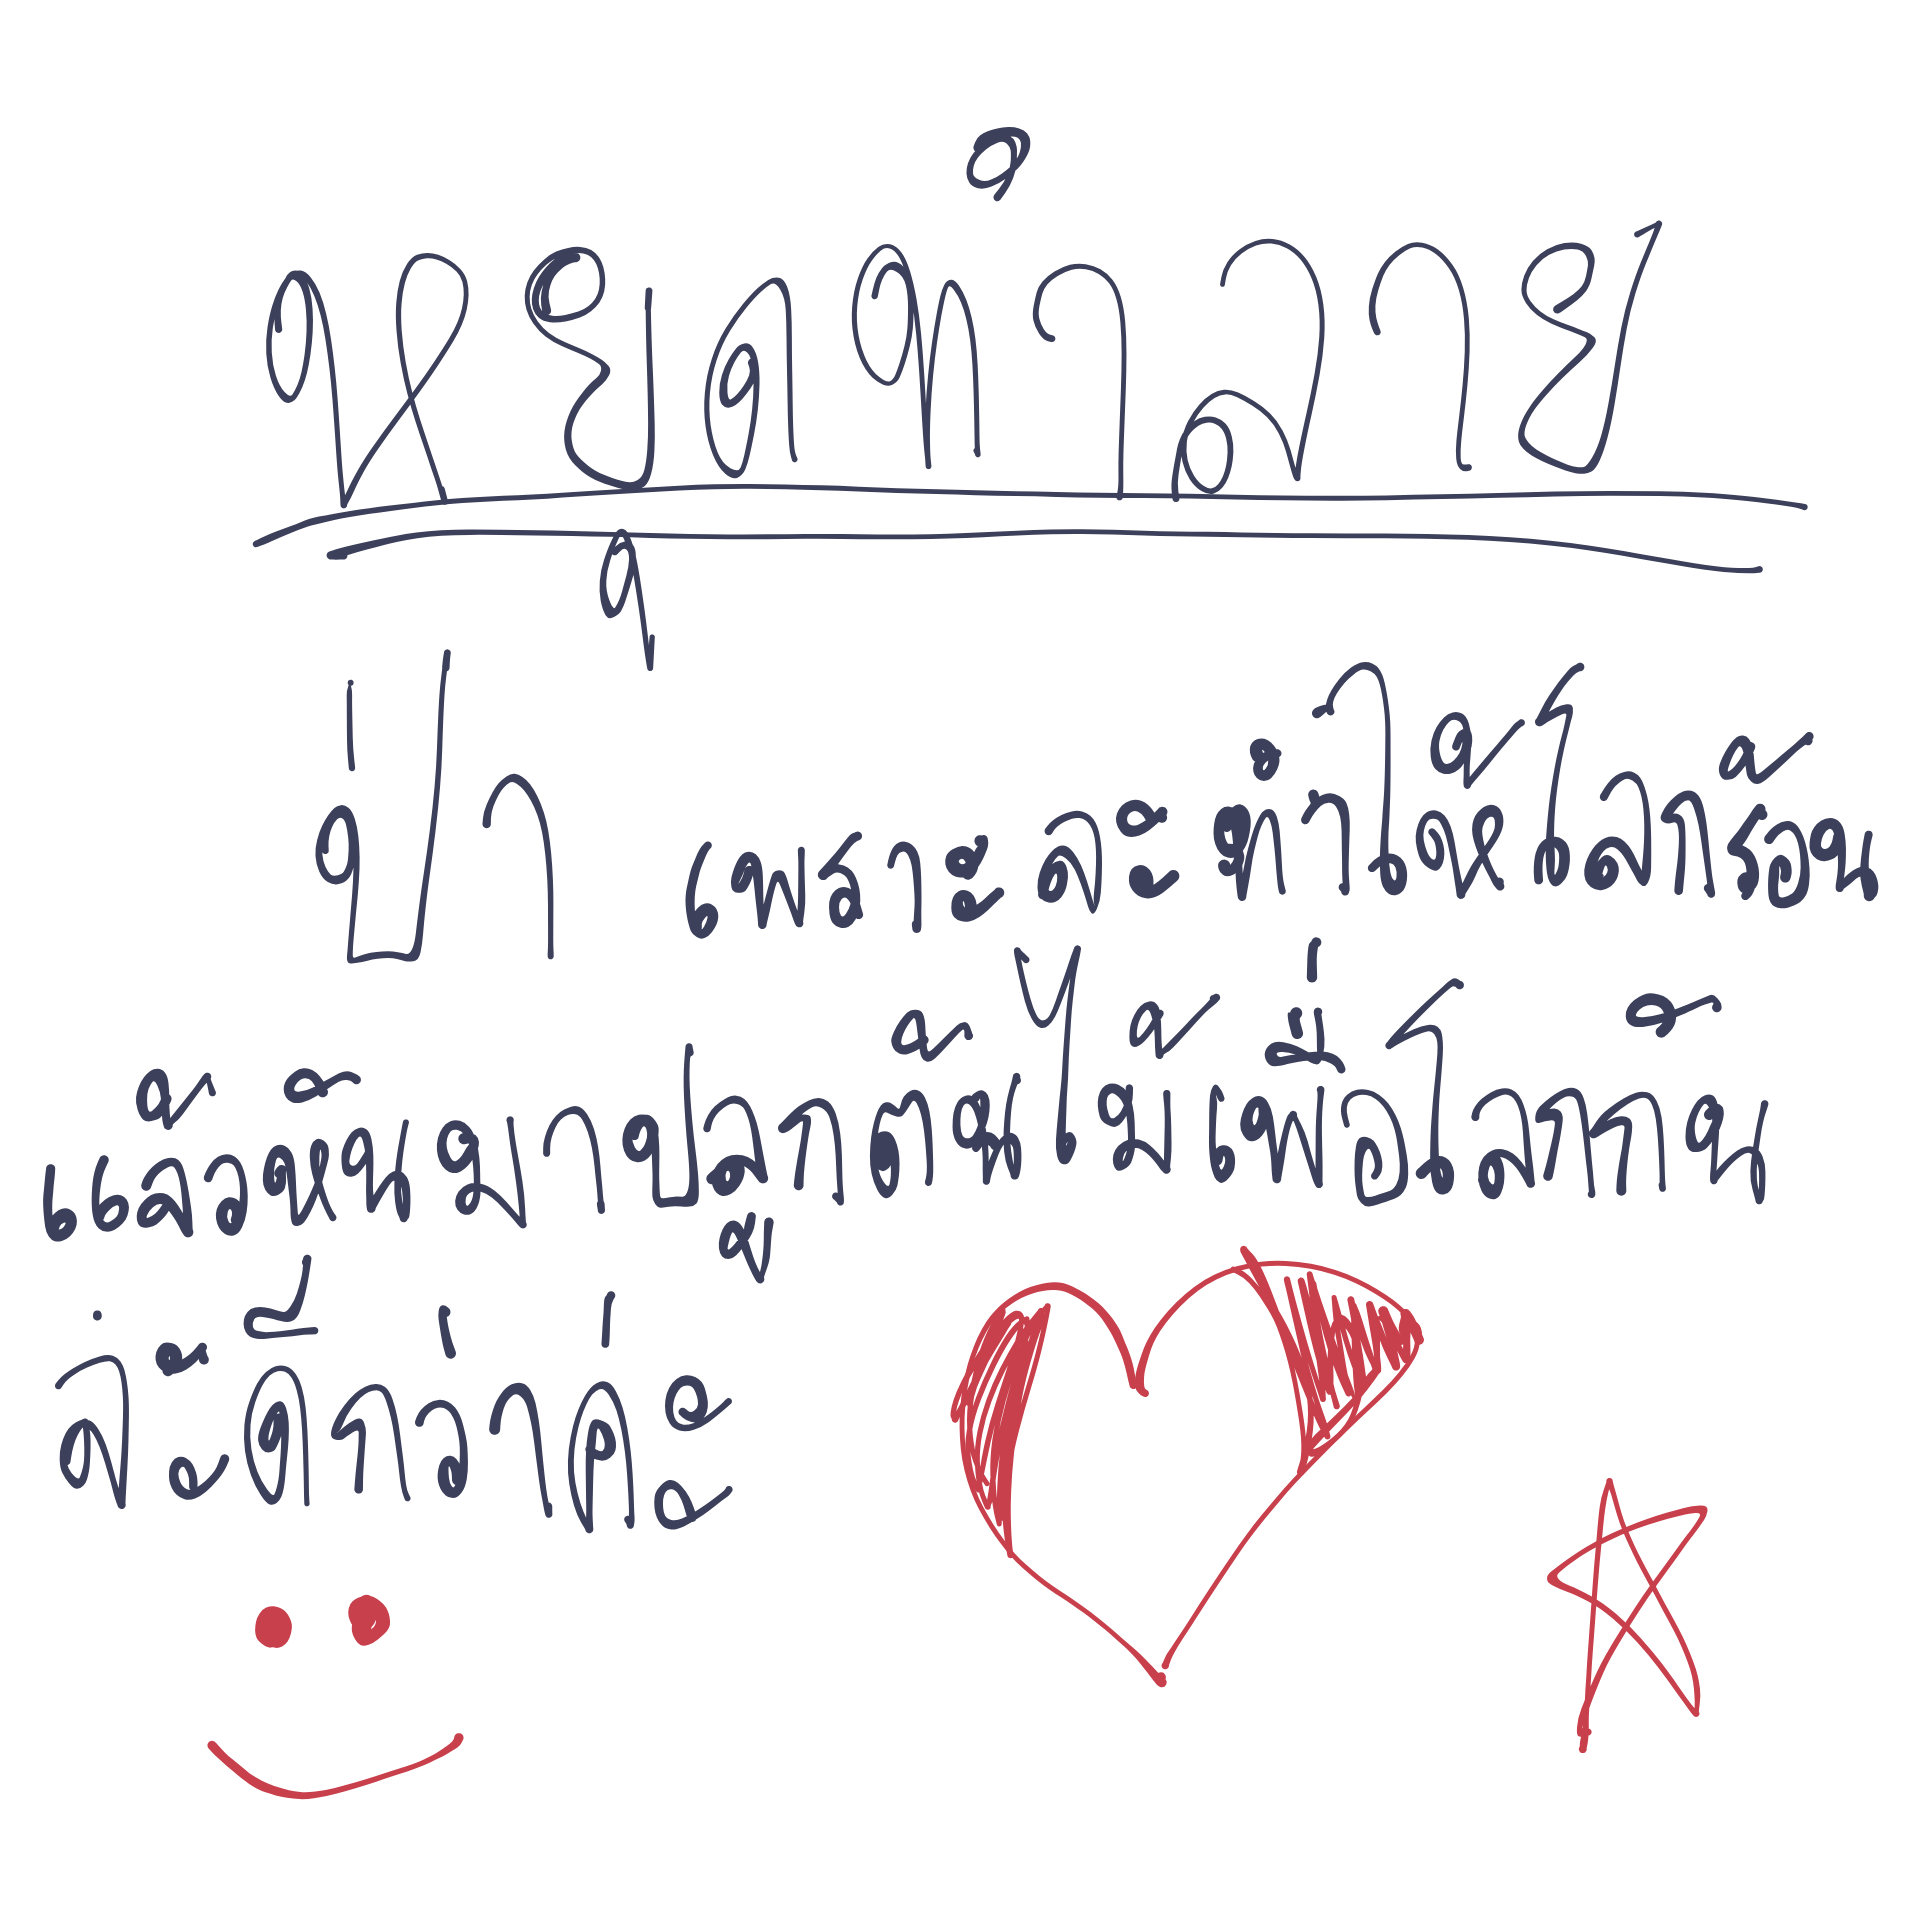 หยุดทำลาย
ป่า เพราะจะทำให้โลกร้อน
แล้วหันมาปลูกต้นไม้เพื่อโลกกัน
ดีกว่าค่ะ